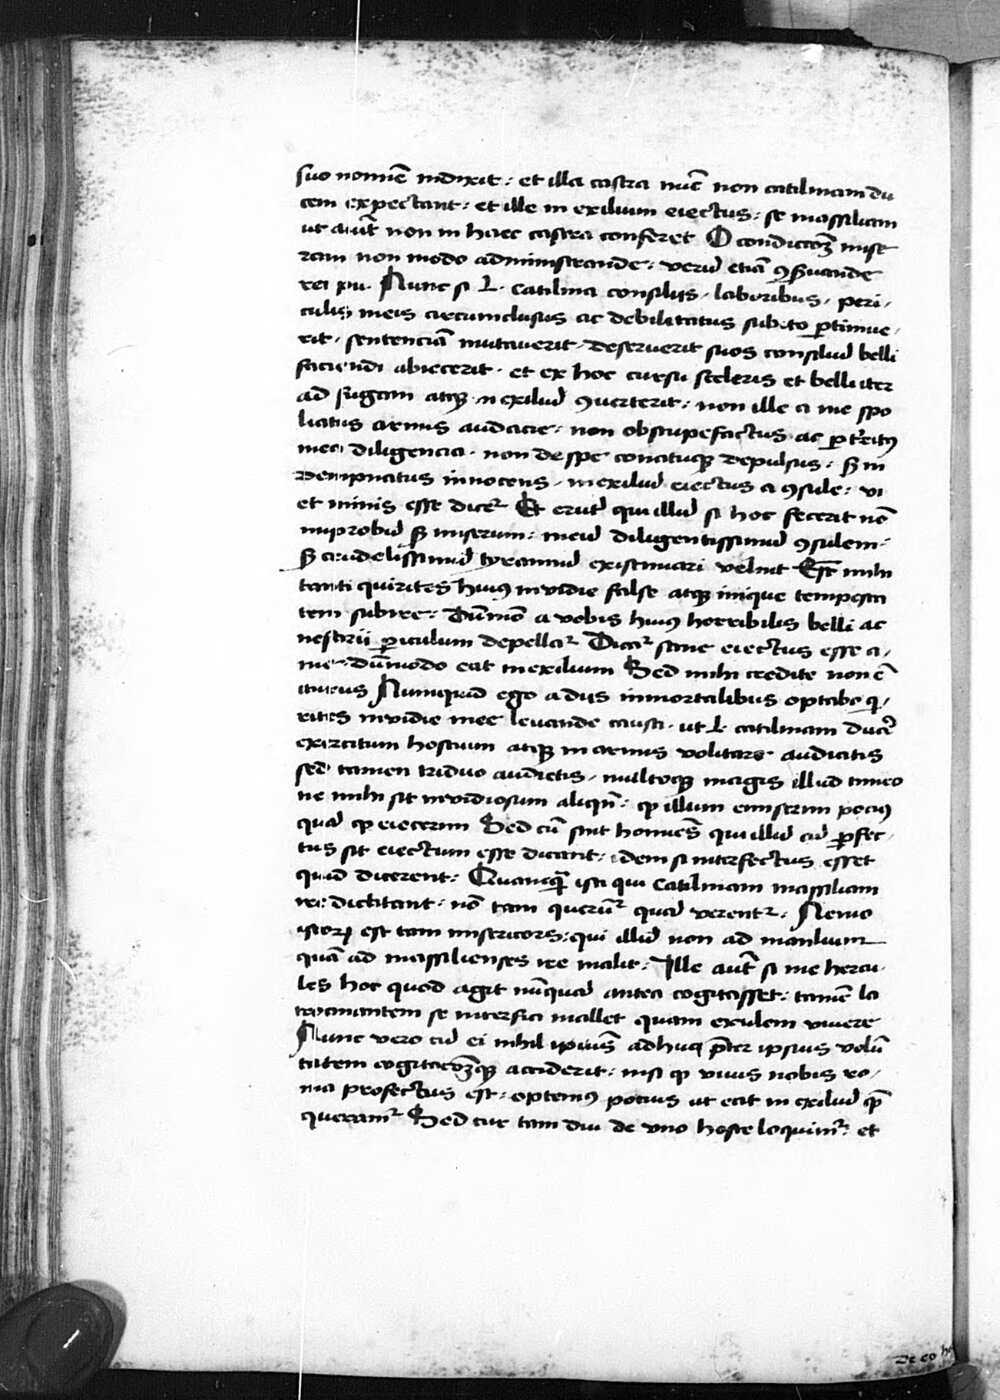 suo nomīe indixit : et illa castra nūc non catilinam du
cem expectant : et ille in exilium eiectus : se massiliam
ut aiūt non in haec castra conferet O condicōeꝫ mise
ram non modo administrande : verū etiā ꝯẜvande
rei pu. Nunc si L. catilina consiliis . laboribus . peri,
culis meis circumclusus ac debilitatus subito ꝑtimue,
rit . sentenciā mutaverit . deseruerit suos consiliū belli
faciendi abiecerit . et ex hoc cursu sceleris et belli iter
ad fugam atqꝫ in exiliū ꝯverterit : non ille a me spo
liatus armis audacie : non obstupefactus ac ꝑtritꝰ
mea diligencia . non de spe conatuqꝫ depulsus : ẜ in
dempnatus innocens . in exiliū eiectus a ꝯsule : vi
et minis esse dicet᷑ Et erūt qui illū si hoc fecerit nō
improbū ẜ miserum : me nō diligentissimū ꝯsulem :
ẜ crudelissimū tyrannū existimari velint Est mihi
tanti quirites huiꝰ invidie false atqꝫ inique tempesta
tem subire : dūmō a vobis huiꝰ horribilis belli ac
nefarii ꝑiculum depellat᷑ Dicat᷑ sane eiectus esse a,
me . dūmodo eat in exilium Sed mihi credite non ē
iturus Numquā ego a diis inmortalibus optabo q̇,
rites invidie mee levande causa . ut L. catilinam ducē
exercitum hostium atqꝫ in armis volitare audiatis
sed tamen triduo audietis . multoqꝫ magis illud timeo
ne mihi sit invidiosum aliqn̄ : ꝙ illum emiserim pociꝰ
quā ꝙ eiecerim Sed cū sint homīes qui illū cū ꝓfec,
tus sit eiectum esse dicant : idem si interfectus esset
quid dicerent : Quanqꝫ isti qui catilinam massiliam
ire dictitant . nō tam querūt᷑ quā verent᷑ : Nemo
istoꝝ est tam misericors : qui illū non ad manlium
quā ad massilienses ire malit : Ille aūt si me hercu,
les hoc quod agit nūquā antea cogitasset : tamē la
trocinantem se interfici mallet quam exulem vivere
Nunc vero cū ei nihil ipsius adhuc p̄ter ipsius volū
tatem cogitacōeꝫqꝫ acciderit : nisi ꝙ vivis nobis ro,
ma profectus est : optemꝰ pocius ut eat in exiliū qꝫ
queramur᷑ Sed cur tam diu de uno hoste loquimur᷑ : et
De eo